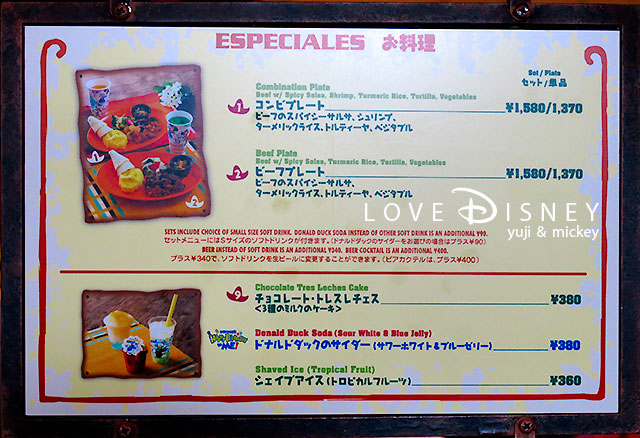 ESPECIALES お料理
Set / Plate
セット/単品
Combination Plate
Beef w/ Spicy Salsa, Shrimp, Turmeric Rice, Tortilla, Vegetables
1 コンビプレート ¥1,580/1,370
ビーフのスパイシーサルサ、シュリンプ、
ターメリックライス、トルティーヤ、ベジタブル
Beef Plate
Beef w/ Spicy Salsa, Turmeric Rice, Tortilla, Vegetables
2 ビーフプレート ¥1,580/1,370
ビーフのスパイシーサルサ、
ターメリックライス、トルティーヤ、ベジタブル
1
2
LOVE DISNEY
yuji & mickey
SETS INCLUDE CHOICE OF SMALL SIZE SOFT DRINK. DONALD DUCK SODA INSTEAD OF OTHER SOFT DRINK IS AN ADDITIONAL ¥90.
セットメニューにはSサイズのソフトドリンクが付きます。(ドナルドダックのサイダーをお選びの場合はプラス¥90)
BEER INSTEAD OF SOFT DRINK IS AN ADDITIONAL ¥340. BEER COCKTAIL IS AN ADDITIONAL ¥400.
プラス¥340で、ソフトドリンクを生ビールに変更することができます。(ビアカクテルは、プラス¥400)
Chocolate Tres Leches Cake
9 チョコレート・トレスレチェス ¥380
<3種のミルクのケーキ>
Donald Duck Soda (Sour White & Blue Jelly)
ドナルドダックのサイダー (サワーホワイト&ブルーゼリー) ¥380
Shaved Ice (Tropical Fruit)
シェイブアイス (トロピカルフルーツ) ¥360